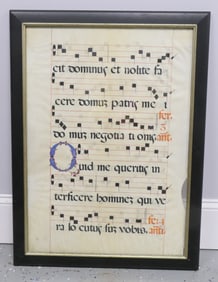 cit dominus et nolite fa
cere domuz patris me i
fer.
3
do muz negotia ti onis ant.
Quid me queritis in
terficere hominez qui ve
fe:4
ra lo cutus suz vobis. ant.